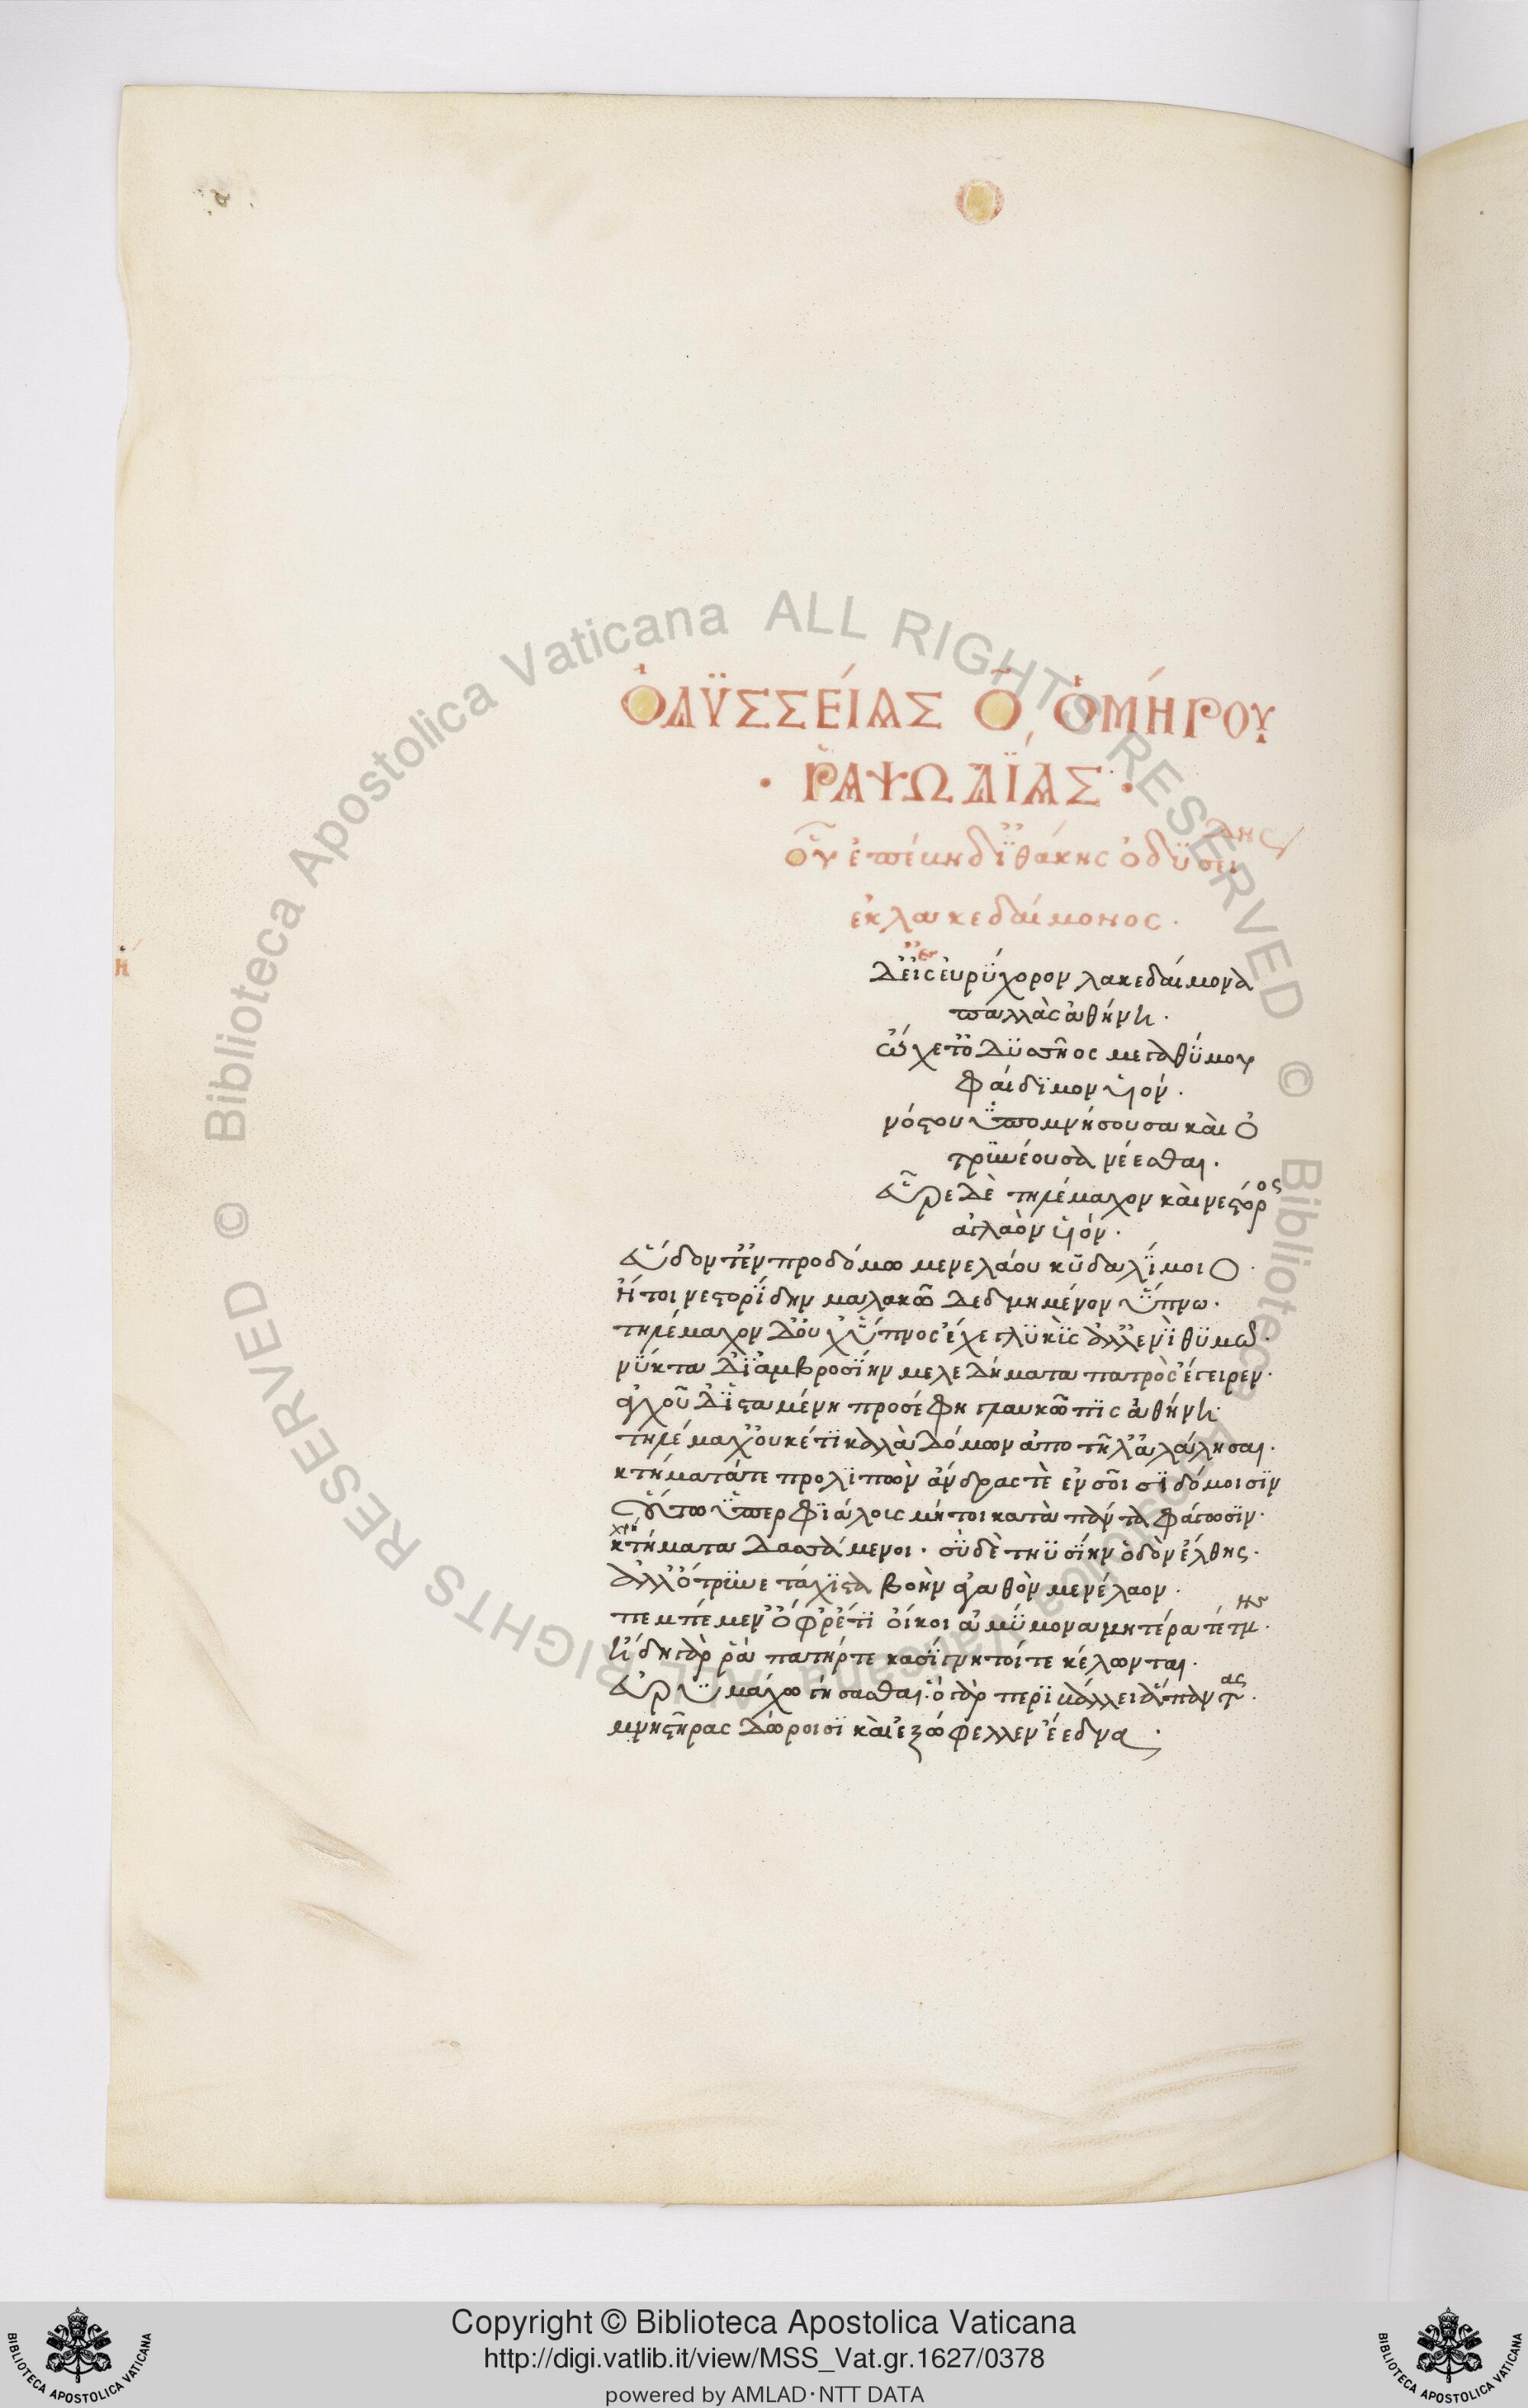 ὈΔΫΣΣΕΊΑΣ Ο̑ ὉΜΉΡΟΥ
· ῬΑΨΩΔΪΆΣ ·
Οὖ ἐπέκηδ ϊθάκης ὀδϋσει δης
ἐκ λακεδαίμονος ·
ἡ
δ εἰς ἐυρϋχορον λακεδαίμονα
παλλὰς ἀθήνη ·
ὤχετ ὀδϋσσῆος μεγαθΰμου
φαίδϊμον υἱον ·
νόστου ϋπομνήσουσα καὶ ὀ
τρϋνέουσα νέεσθαι ·
εὗρε δὲ τηλέμαχον καὶ νέστόρος
ἀγλαὸν υἱόν ·
εὕδοντ ἐν προδόμω μενελάου κῡδαλΐμοιο ·
ἤτοι νεστορΐδην μαλακῶ δεδμημένον ὕπνω ·
τηλέμαχον δ ὀυχ ὕπνος ἔχε γλϋκϋς ἀλλ ἐνὶ θϋμῶ ·
νΰκτα δϊ ἀμβροσΐην μελεδήματα πατρὸς ἔγειρεν ·
ἀγχοῦ δ ϊσταμένη προσέφη γλαυκῶπϊς ἀθήνη ·
τηλέμαχ ὀυκέτϊ καλὰ δόμων ἄπο τῆλ ἀλάλησαι ·
κτήματά τε προλϊπὼν ἄνδρας τὲ ἐν σοῖσϊ δόμοισϊν
οὕτω ϋπερφϊάλους μή τοι κατὰ πάντα φάγωσϊν ·
κτήματα δασσάμενοι · σϋ δὲ τηϋσΐην ὁδὸν ἔλθης ·
ἀλλ ὄτρϋνε τάχϊστα βοὴν ἀγαθὸν μενέλαον ·
πεμπέμεν ὄφρ ἔτϊ οἴκοι ἀμΰμονα μητέρα τέτμης ·
ἤδη γάρ ῥὰ πατήρ τε κασΐγνητοί τε κέλωνται ·
εὐρϋμάχω γήμασθαι · ὁ γὰρ περϊκάλλει ἅπαντας ·
μνηστῆρας δώροισϊ καὶ ἐξώφελλεν ἔεδνα ·
Copyright © Biblioteca Apostolica Vaticana
http://digi.vatlib.it/view/MSS_Vat.gr.1627/0378
powered by AMLAD·NTT DATA
BIBLIOTECA APOSTOLICA VATICANA
BIBLIOTECA APOSTOLICA VATICANA
© Biblioteca Apostolica Vaticana ALL RIGHTS RESERVED © Biblioteca Apostolica Vaticana ALL RIGHTS RESERVED